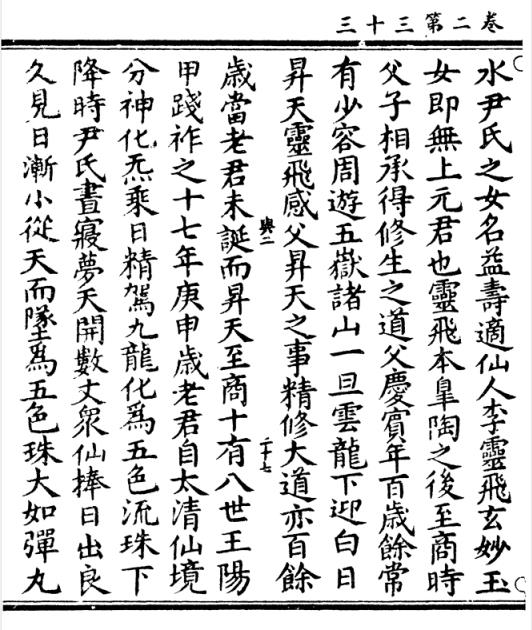 卷二第三十三
水尹氏之女名益壽適仙人李靈飛玄妙玉
女即無上元君也靈飛本皐陶之後至商時
父子相承得修生之道父慶賓年百歲餘常
有少容周遊五嶽諸山一旦雲龍下迎白日
昇天靈飛感父昇天之事精修大道亦百餘
與二
二十七
歲當老君未誕而昇天至商十有八世王陽
甲踐祚之十七年庚申歲老君自太清仙境
分神化炁乘日精駕九龍化爲五色流珠下
降時尹氏晝寢夢天開數丈衆仙捧日出良
久見日漸小從天而墜爲五色珠大如彈丸